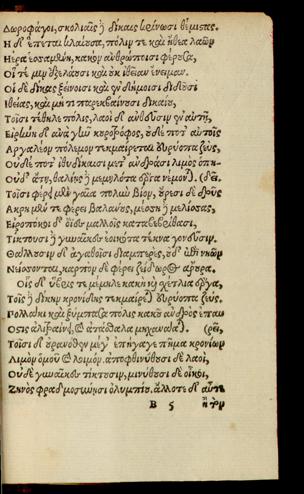 Δωροφάγοι, σκολιαῖς ἢ δίκαις κρίνωσι θέμιστας.
Η δ' ἕπεται κλαίουσα, πόλιν τε καὶ ἤθεα λαῶν
Ηέρα ἑσσαμένη, κακὸν ἀνθρώποισι φέρουσα,
Οἵ τέ μιν ἐξελάουσι καὶ οὐκ ἰθεῖαν ἔνειμαν.
Οἳ δὲ δίκας ξείνοισι καὶ ἐνδήμοισι διδοῦσι
Ιθείας, καὶ μή τι παρεκβαίνουσι δικαίου,
Τοῖσι τέθηλε πόλις, λαοὶ δ' ἀνθεῦσιν ἐν αὐτῇ,
Εἰρήνη δ' ἀνὰ γῆν κουροτρόφος, οὐδέ ποτ' αὐτοῖς
Αργαλέον πόλεμον τεκμαίρεται εὐρύοπα ζεύς.
Οὐδέ ποτ' ἰθυδίκαισι μετ' ἀνδράσι λιμὸς ὀπηδεῖ,
Οὐδ' ἄτη, θαλίης δὲ μεμηλότα ἔργα νέμονται.
Τοῖσι φέρει μὲν γαῖα πολὺν βίον, οὔρεσι δὲ δρῦς
Ακρη μέν τε φέρει βαλάνους, μέσση δὲ μελίσσας,
Εἰροπόκοι δ' ὄϊες μαλλοῖς καταβεβρίθασι,
Τίκτουσι δὲ γυναῖκες ἐοικότα τέκνα γονεῦσιν.
Θάλλουσιν δ' ἀγαθοῖσι διαμπερὲς, οὐδ' ἐπὶ νηῶν
Νείσσονται, καρπὸν δὲ φέρει ζείδωρος ἄρουρα.
Οἷς δ' ὕβρις τε μέμηλε κακὴ καὶ σχέτλια ἔργα,
Τοῖς δὲ δίκην κρονίδης τεκμαίρεται εὐρύοπα ζεύς.
Πολλάκι καὶ ξύμπασα πόλις κακοῦ ἀνδρὸς ἐπαυρεῖ,
Οστις ἀλιτραίνει καὶ ἀτάσθαλα μηχανάαται.
Τοῖσι δ' οὐρανόθεν μέγ' ἐπήγαγε πῆμα κρονίων
Λιμὸν ὁμοῦ καὶ λοιμὸν. ἀποφθινύθουσι δὲ λαοί,
Οὐδὲ γυναῖκες τίκτουσιν, μινύθουσι δὲ οἶκοι,
Ζηνὸς φραδμοσύνησιν ὀλυμπίου. ἄλλοτε δ' αὖτε
B 5 ἢ τῶν